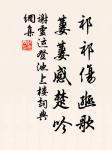 祁祁傷豳歌
萋萋感楚吟
謝靈運登池上樓詞典
網集